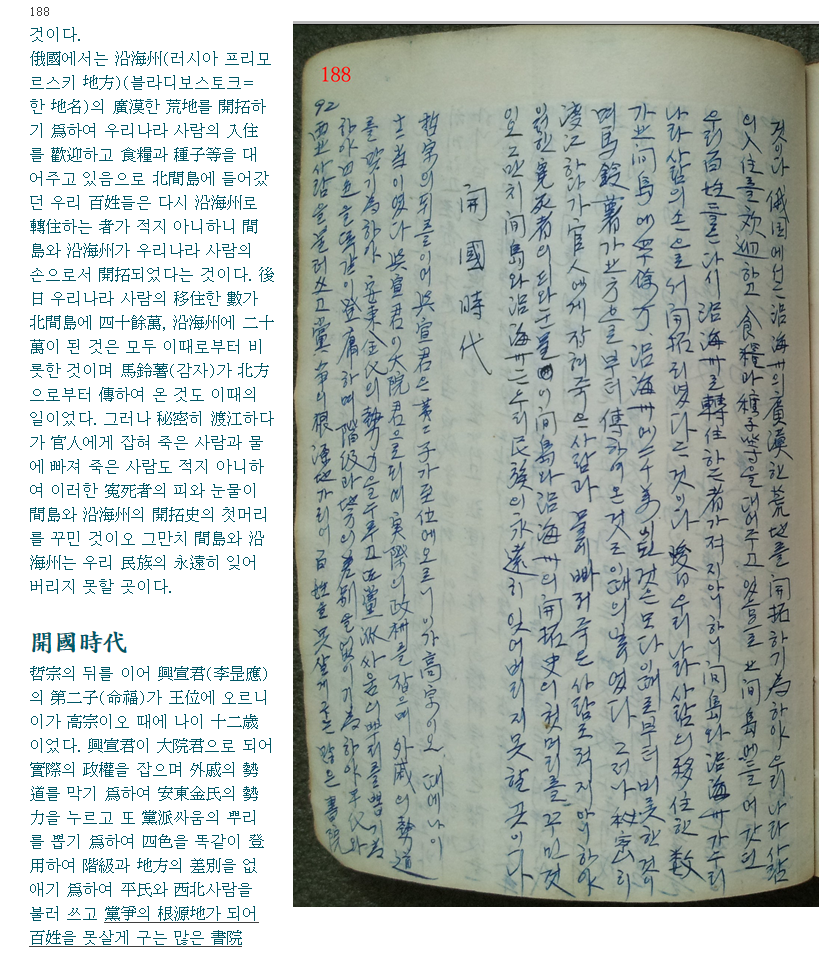 188
것이다.
俄國에서는 沿海州(러시아 프리모
르스키 地方)(블라디보스토크=
한 地名)의 廣漠한 荒地를 開拓하
기 爲하여 우리나라 사람의 入住
를 歡迎하고 食糧과 種子等을 대
어주고 있음으로 北間島에 들어갔
던 우리 百姓들은 다시 沿海州로
轉住하는 者가 적지 아니하니 間
島와 沿海州가 우리나라 사람의
손으로서 開拓되었다는 것이다. 後
日 우리나라 사람의 移住한 數가
北間島에 四十餘萬, 沿海州에 二十
萬이 된 것은 모두 이때로부터 비
롯한 것이며 馬鈴薯(감자)가 北方
으로부터 傳하여 온 것도 이때의
일이었다. 그러나 秘密히 渡江하다
가 官人에게 잡혀 죽은 사람과 물
에 빠져 죽은 사람도 적지 아니하
여 이러한 冤死者의 피와 눈물이
間島와 沿海州의 開拓史의 첫머리
를 꾸민 것이오 그만치 間島와 沿
海州는 우리 民族의 永遠히 잊어
버리지 못할 곳이다.
開國時代
哲宗의 뒤를 이어 興宣君(李昰應)
의 第二子(命福)가 王位에 오르니
이가 高宗이오 때에 나이 十二歲
이었다. 興宣君이 大院君으로 되어
實際의 政權을 잡으며 外戚의 勢
道를 막기 爲하여 安東金氏의 勢
力을 누르고 또 黨派싸움의 뿌리
를 뽑기 爲하여 四色을 똑같이 登
用하여 階級과 地方의 差別을 없
애기 爲하여 平民와 西北사람을
불러 쓰고 黨爭의 根源地가 되어
百姓을 못살게 구는 많은 書院
188
것이다 俄国에서는 沿海州의 廣漠한 荒地를 開拓하기 爲하야 우리나라 사람
의 入住를 歡迎하고 食糧과 種子等을 대여주고 있음으로 北間島에 들어갓던
우리 百姓들은 다시 沿海州로 轉住하는 者가 적지 아니하니 間島와 沿海州가 우리
나라 사람의 손으로서 開拓되였다는 것이다 後日 우리나라 사람의 移住한 數
가 北間島에 四十餘万 沿海州에 二十万이 된 것은 모다 이때로부터 비롯한 것이
며 馬鈴薯가 北方으로부터 傳하여 온 것도 이때의 일이였다 그러나 秘密히
渡江하다가 官人에게 잡혀 죽은 사람과 물에 빠저 죽은 사람도 적지 아니하야
이러한 寃死者의 피와 눈물이 間島와 沿海州의 開拓史의 첫머리를 꾸민 것
이오 그만치 間島와 沿海州는 우리 民族의 永遠히 잊어버리지 못할 곳이다
開國時代
哲宗의 뒤를 이어 興宣君은 第二子가 王位에 오르니 이가 高宗이오 때에 나이
十二岁이였다 興宣君이 大院君으로 되여 実際의 政权를 잡으며 外戚의 勢道
를 막기 爲하야 安東金氏의 勢力을 누르고 또 黨派싸움의 뿌리를 뽑기 爲
하야 四色을 똑같이 登庸하며 階級과 地方의 差別을 없이기 爲하야 平民와
西北사람을 불러 쓰고 黨争의 根源地가 되여 百姓을 못살게 구는 많은 書院
92